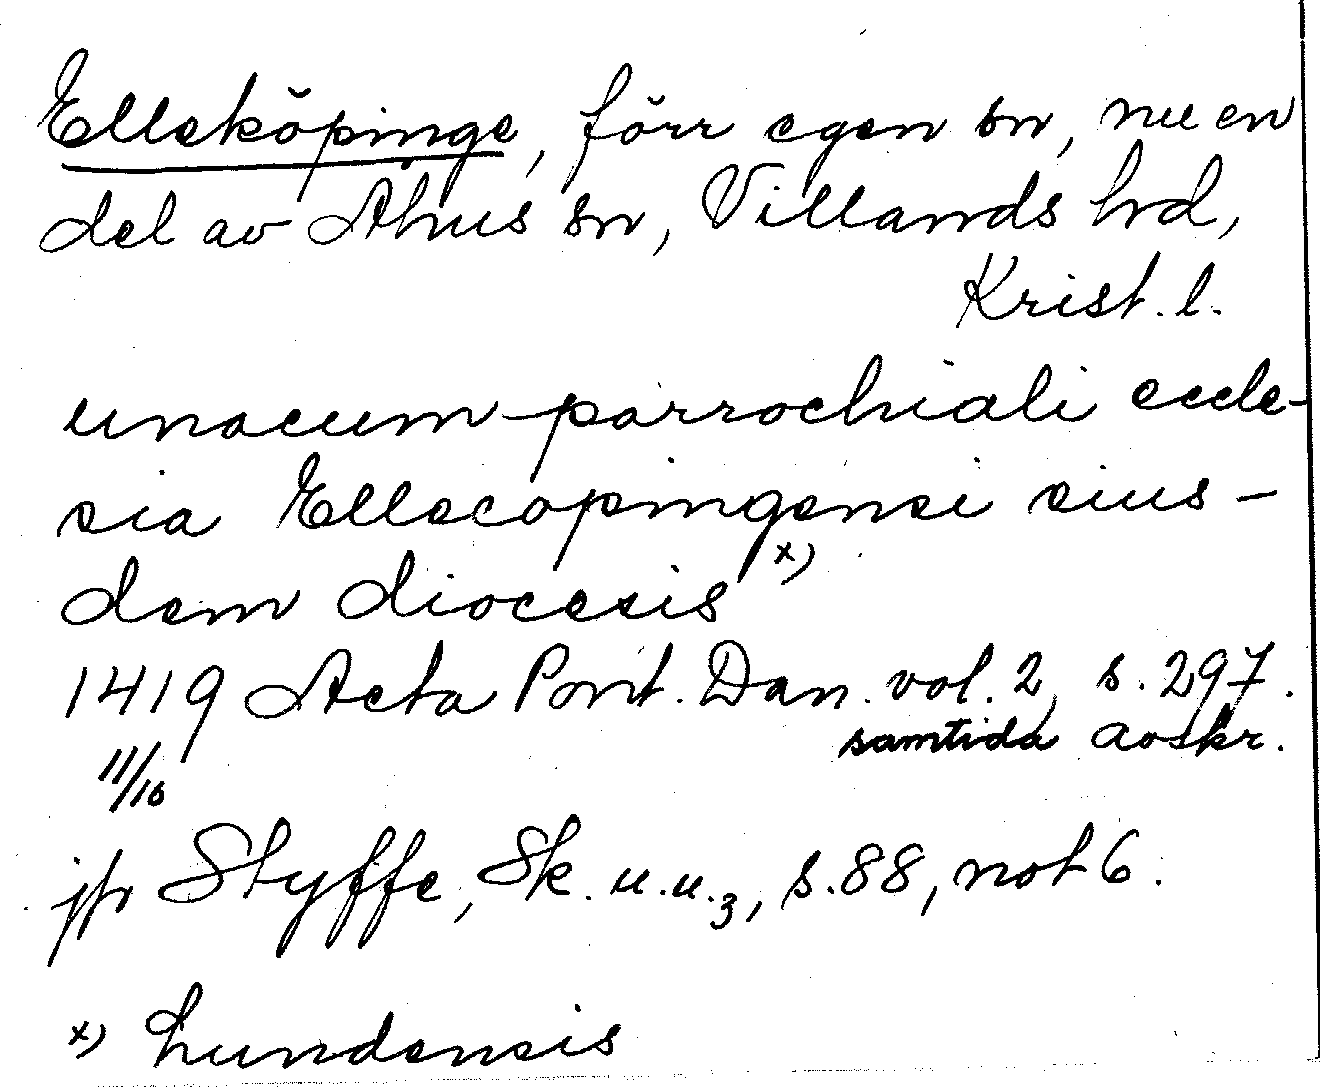 Elleköpinge, förr egen sn, nu en
del av Åhus sn, Villands hd,
Krist. l.
unacum parrochiali eccle-
sia Ellecopingensi eius-
dem diocesis x)
1419 Acta Pont. Dan. vol. 2, s. 297.
samtida avskr.
11/10
jfr Styffe, Sk. u.u.3, s. 88, not 6.
x) Lundensis